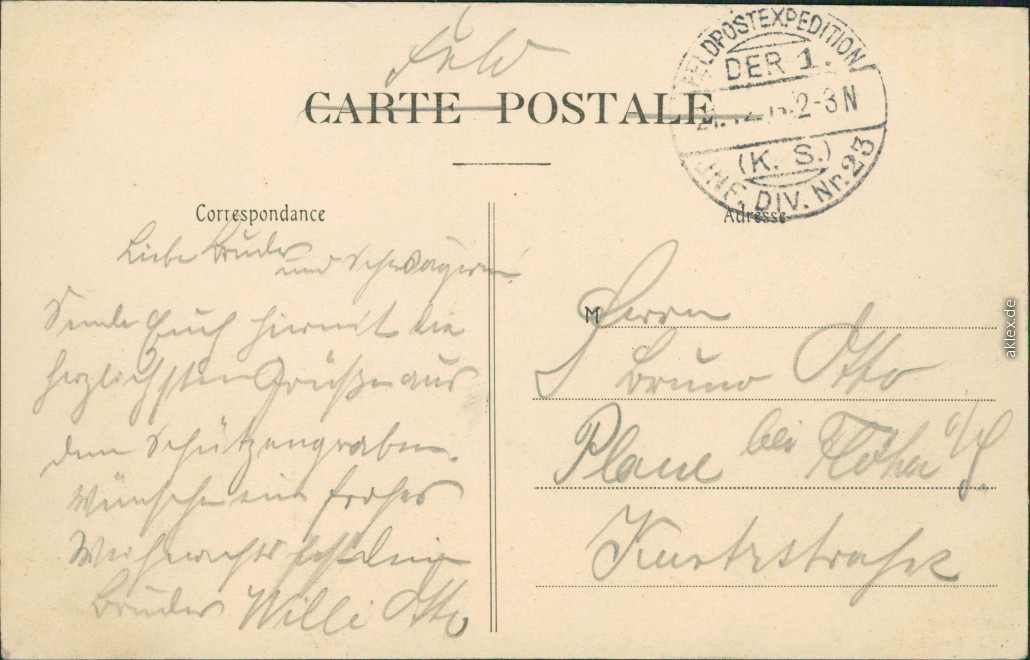 Feld
CARTE POSTALE
FELDPOSTEXPEDITION
DER 1.
2-3 N
(K. S.)
INF. DIV. Nr. 23
Correspondance
Liebe Bruder
und Schwägerin!
Sende Euch hiermit die
herzlichsten Grüße aus
dem Schützengraben.
Wünsche ein frohes
Weihnachtsfest dein
Bruder Willi Otto
Adresse
M
Herrn
Bruno Otto
Plaue bei Flöha i/S.
Kurtzstraße
aklex.de